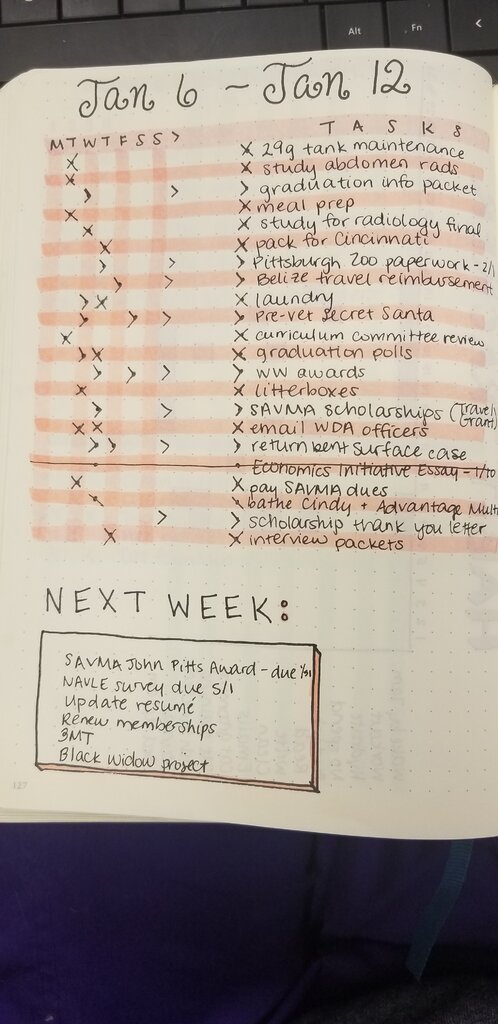 Alt
Fn
Jan 6 - Jan 12
M T W T F S S > T A S K S
X 29g tank maintenance
X study abdomen rads
> graduation info packet
X meal prep
X study for radiology final
X pack for Cincinnati
> Pittsburgh Zoo paperwork - 2/1
> Belize travel reimbursement
X laundry
> Pre-vet Secret Santa
X curriculum committee review
X graduation polls
> WW awards
X litterboxes
> SAVMA scholarships (Travel Grant)
X email WDA officers
> return bent surface case
• Economics Initiative Essay - 1/10
X pay SAVMA dues
bathe Cindy + Advantage Multi
> scholarship thank you letter
X interview packets
NEXT WEEK:
SAVMA John Pitts Award - due 1/31
NAVLE survey due 5/1
Update resumé
Renew memberships
3MT
Black widow project
127